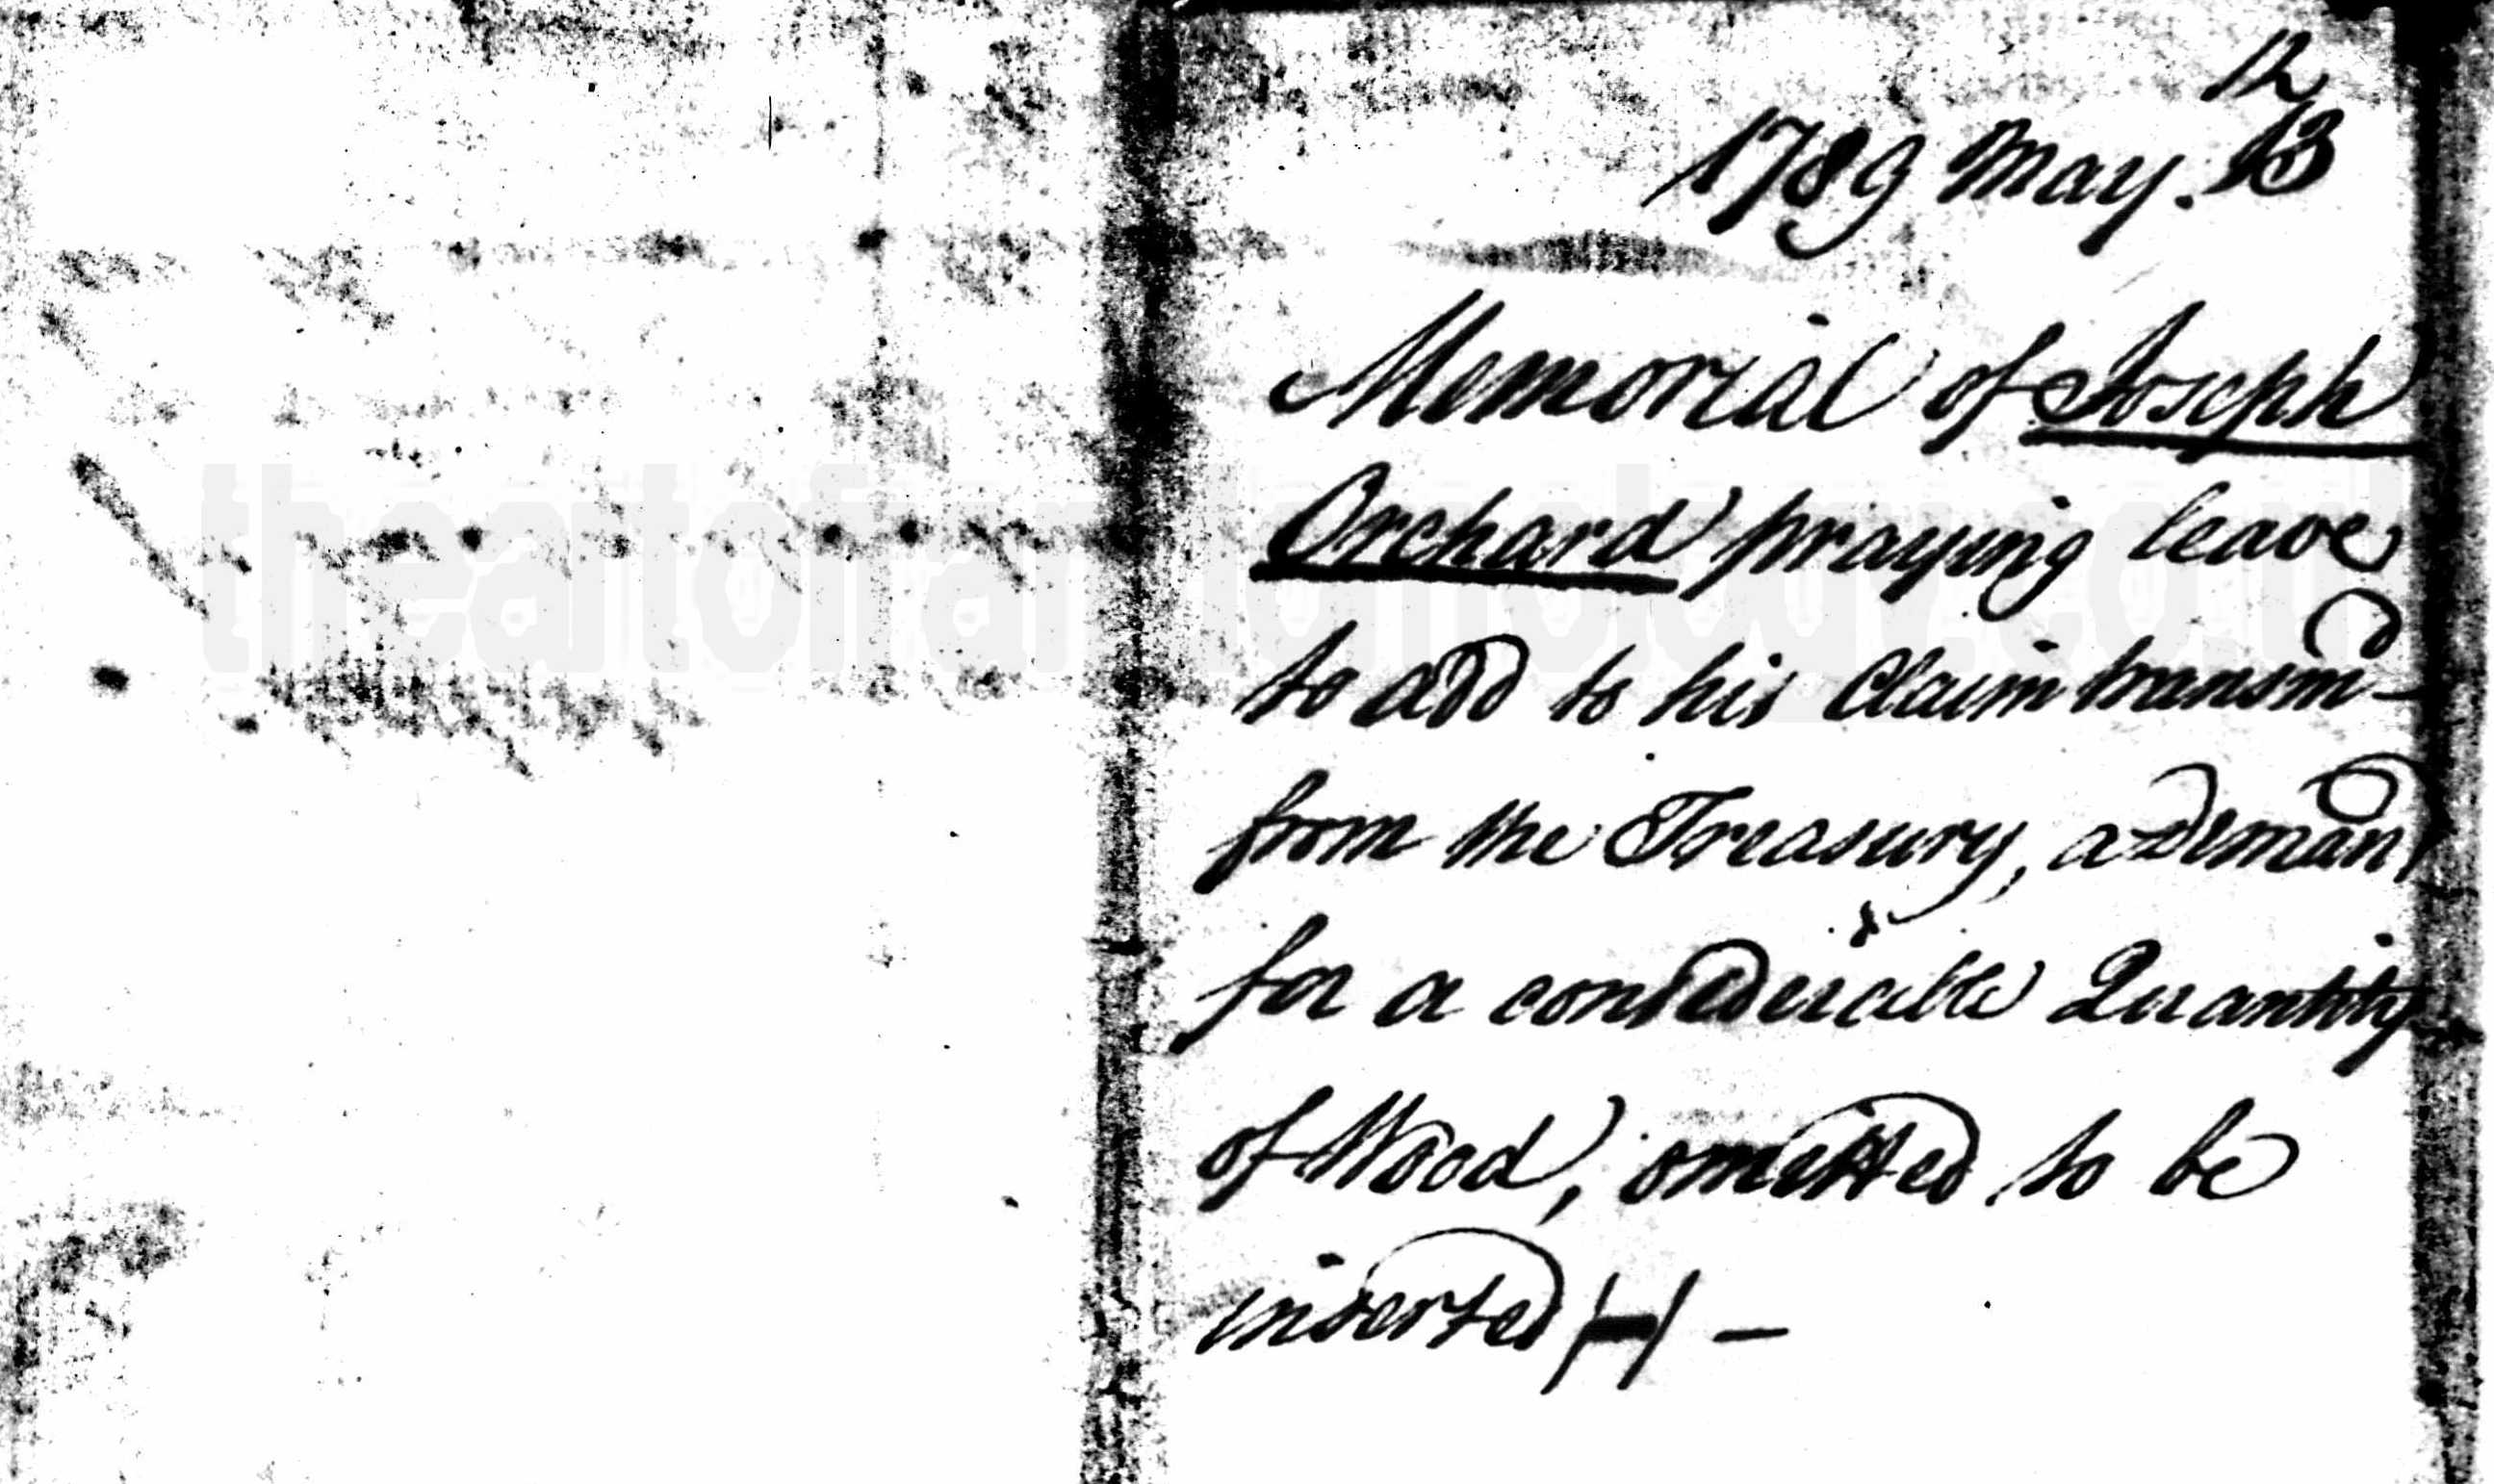 12
1789 May. 13
Memorial of Joseph
Orchard praying leave
to add to his Claim transm^d -
from the Treasury, a deman^d
for a considerable Quantity
of Wood, omitted to be
inserted H —